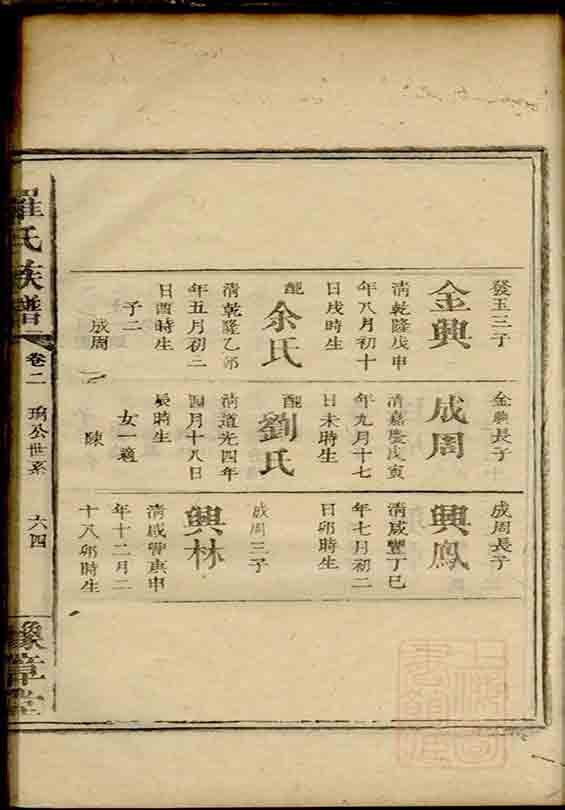 發玉三子
金興
清乾隆戊申
年八月初十
日戌時生
配
余氏
清乾隆乙卯
年五月初二
日酉時生
子二
成周
金興長子
成周
清嘉慶戊寅
年九月十七
日未時生
配
劉氏
清道光四年
四月十八日
辰時生
女一適
陳
成周長子
興鳳
清咸豐丁巳
年七月初二
日卯時生
成周三子
興林
清咸豐庚申
年十二月二
十八卯時生
羅氏族譜
卷二
公世系
六四
豫章堂